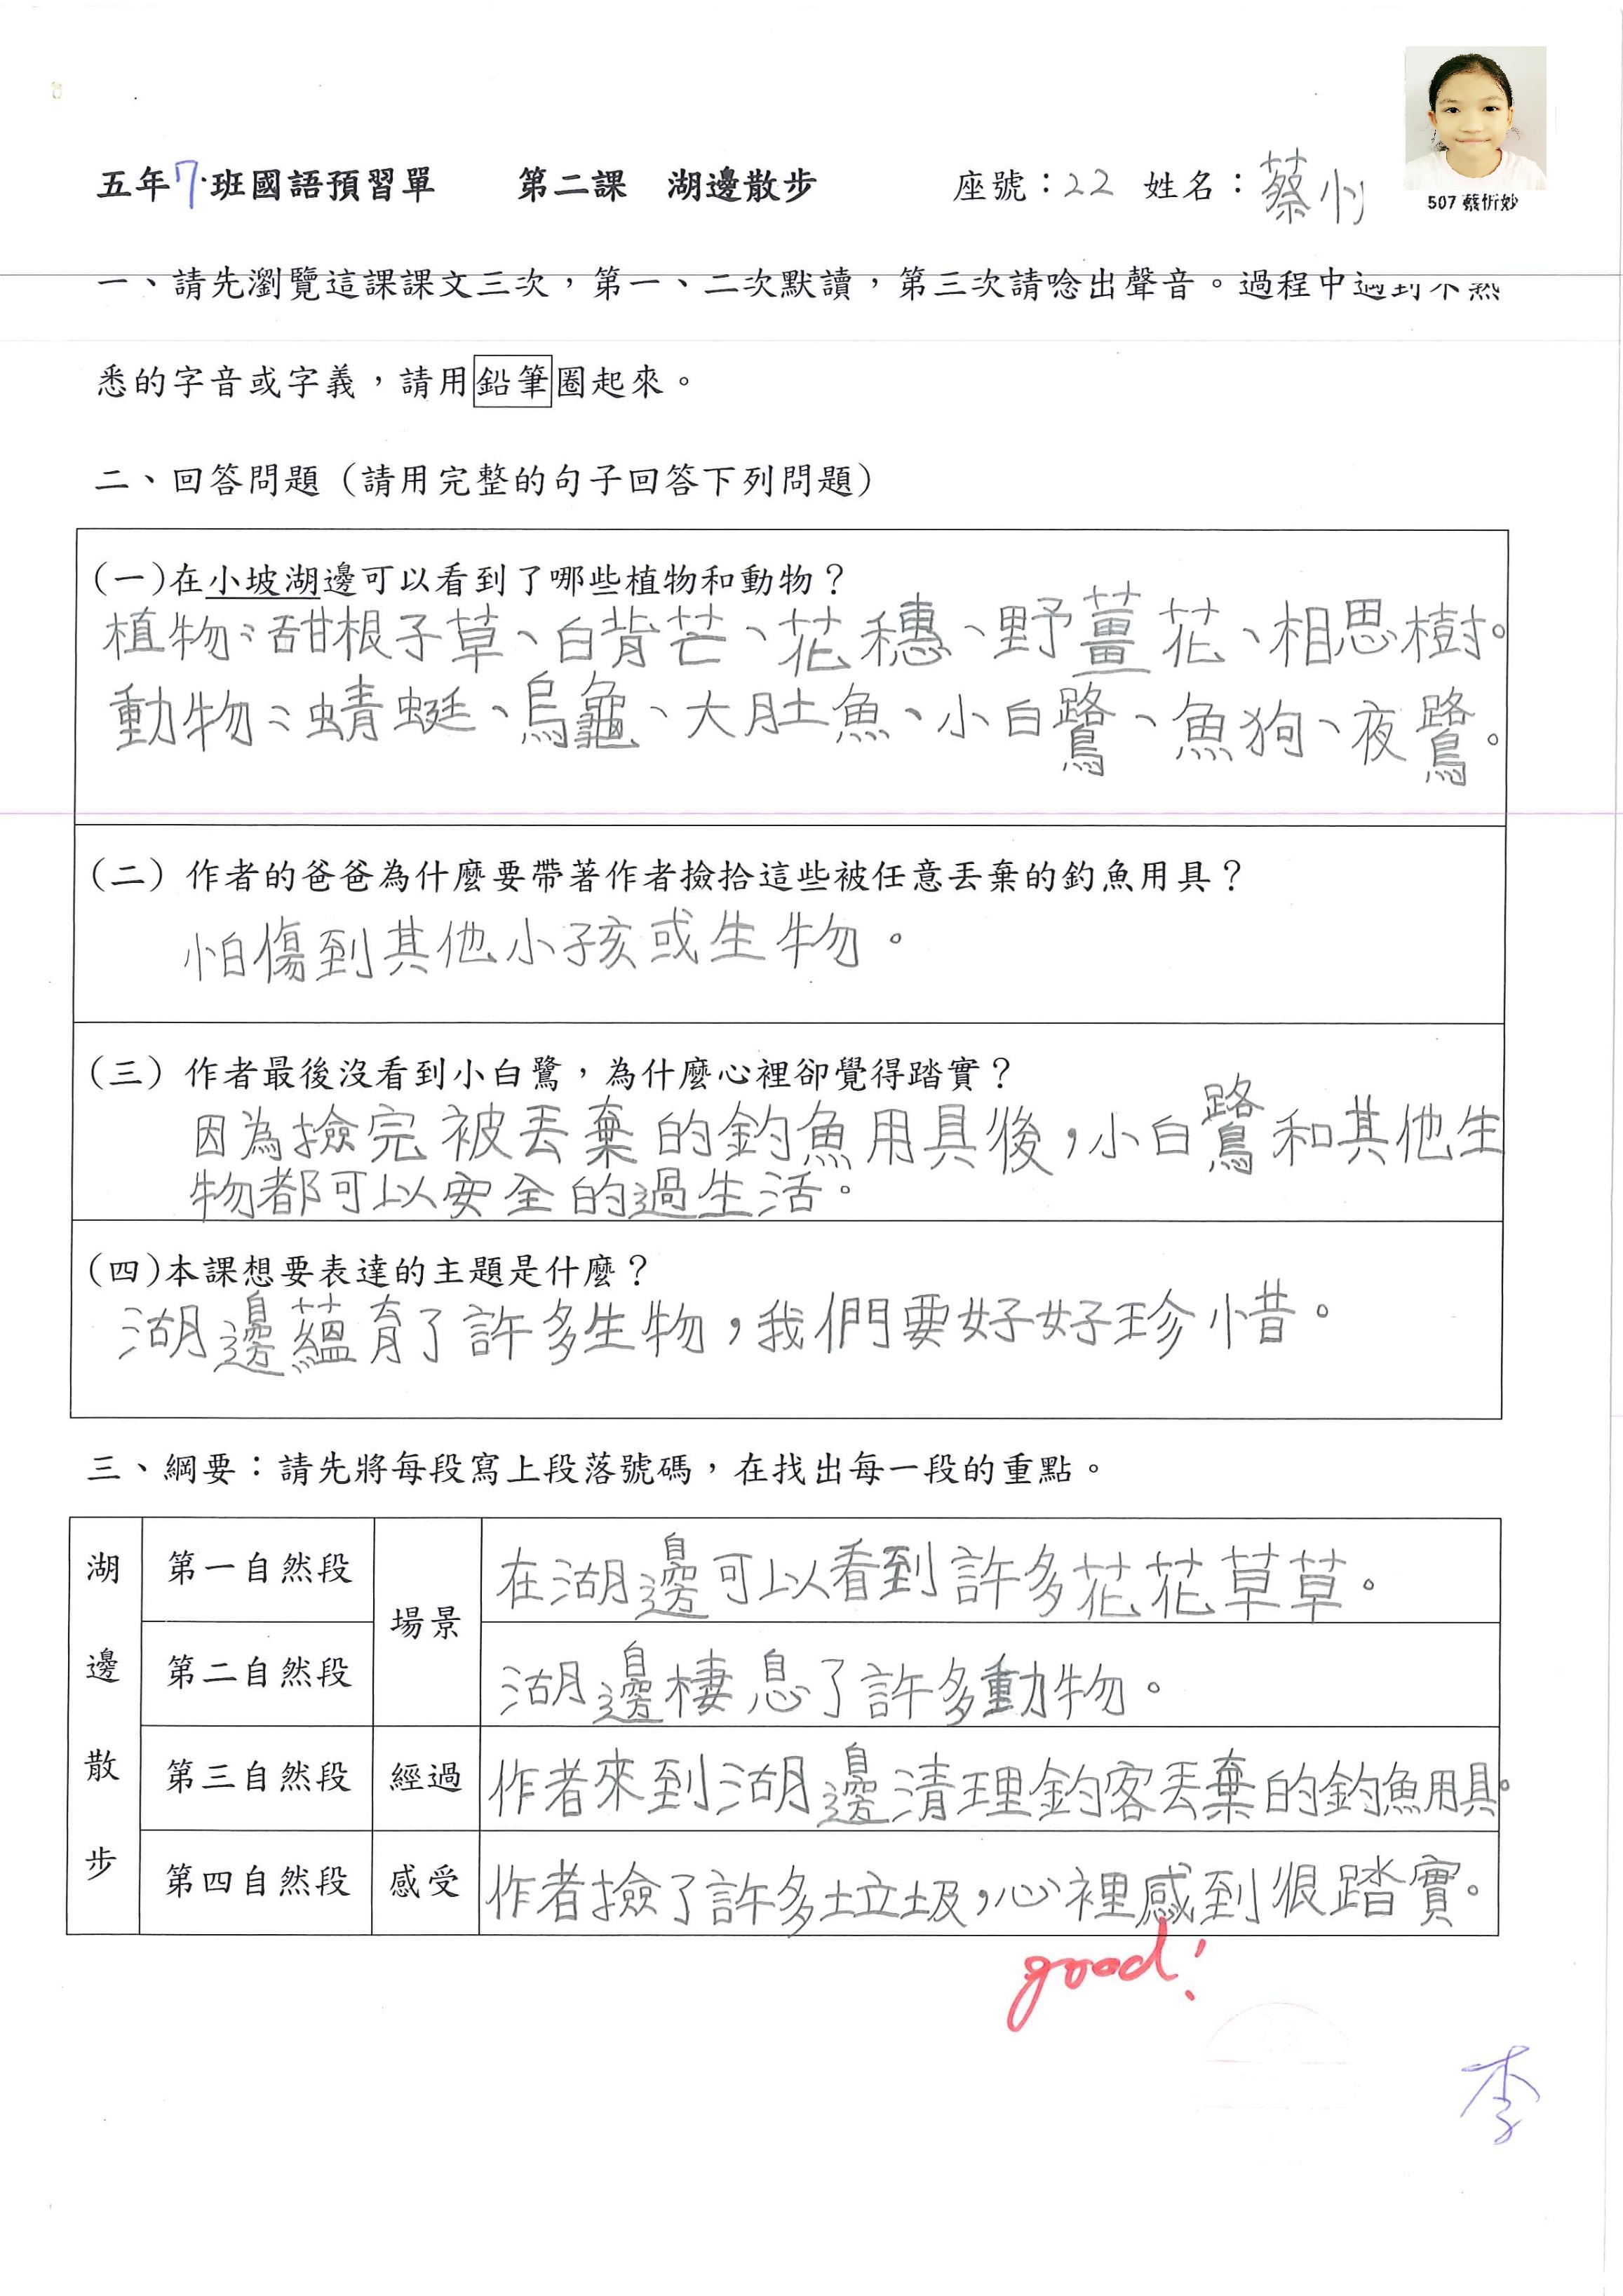 五年7班國語預習單 第二課 湖邊散步 座號：22 姓名：蔡
507 蔡忻妙
一、請先瀏覽這課課文三次，第一、二次默讀，第三次請唸出聲音。過程中遇到不熟
悉的字音或字義，請用鉛筆圈起來。
二、回答問題（請用完整的句子回答下列問題）
(一)在小坡湖邊可以看到了哪些植物和動物？
植物：甜根子草、白背芒、花穗、野薑花、相思樹。
動物：蜻蜓、烏龜、大肚魚、小白鷺、魚狗、夜鷺。
(二) 作者的爸爸為什麼要帶著作者撿拾這些被任意丟棄的釣魚用具？
怕傷到其他小孩或生物。
(三) 作者最後沒看到小白鷺，為什麼心裡卻覺得踏實？
因為撿完被丟棄的釣魚用具後，小白鷺和其他生
物都可以安全的過生活。
(四)本課想要表達的主題是什麼？
湖邊蘊育了許多生物，我們要好好珍惜。
三、綱要：請先將每段寫上段落號碼，在找出每一段的重點。
湖邊散步
第一自然段 場景 在湖邊可以看到許多花花草草。
第二自然段 湖邊棲息了許多動物。
第三自然段 經過 作者來到湖邊清理釣客丟棄的釣魚用具。
第四自然段 感受 作者撿了許多垃圾，心裡感到很踏實。
good!
李